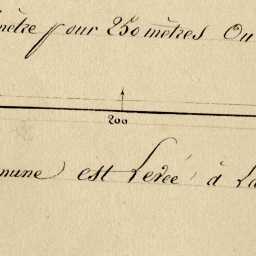 mètre pour 250 mètres Ou
200
mune est Levée à La